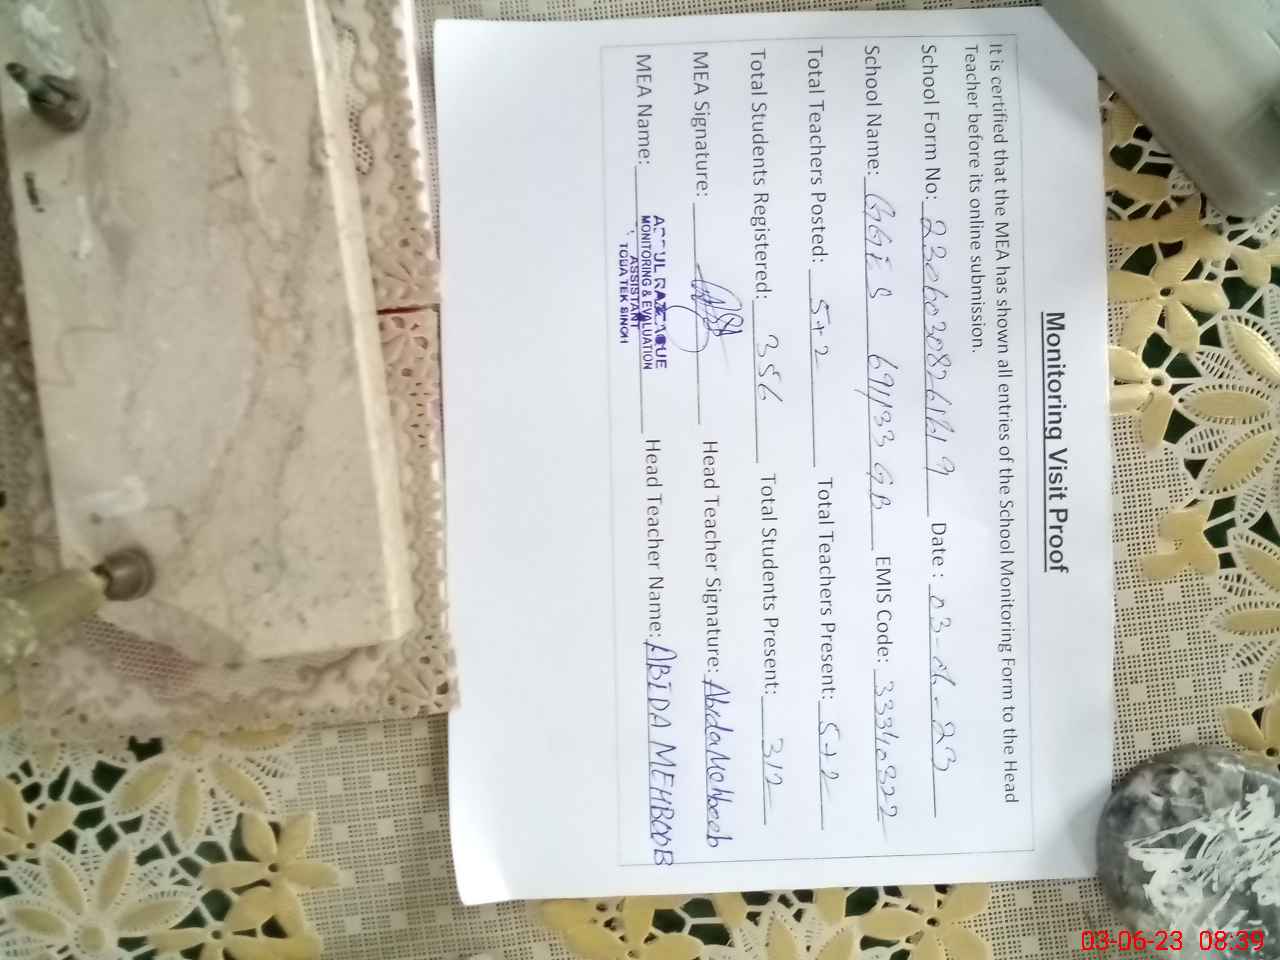 Monitoring Visit Proof
It is certified that the MEA has shown all entries of the School Monitoring Form to the Head
Teacher before its online submission.
School Form No: Date: 03- -23
School Name: GGES GB EMIS Code:
Total Teachers Posted: 5+2 Total Teachers Present: 5+2
Total Students Registered: 356 Total Students Present: 312
MEA Signature: Head Teacher Signature: Abida Mehboob
MEA Name: Head Teacher Name: ABIDA MEHBOOB
MONITORING & EVALUATION
ASSISTANT
TOBA TEK SINGH
03-06-23 08:39